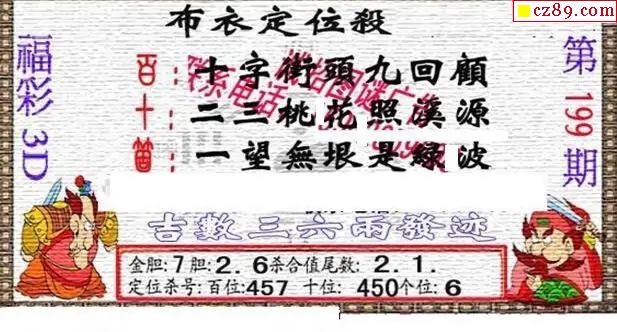 cz89.com
布衣定位殺
福彩3D
第199期
百:十字街頭九回顧
十:二三桃花照溪源
個:一望無垠是綠波
吉數三六兩發迹
金胆:7胆:2.6杀合值尾数:2.1.
定位杀号:百位:457 十位:450个位:6